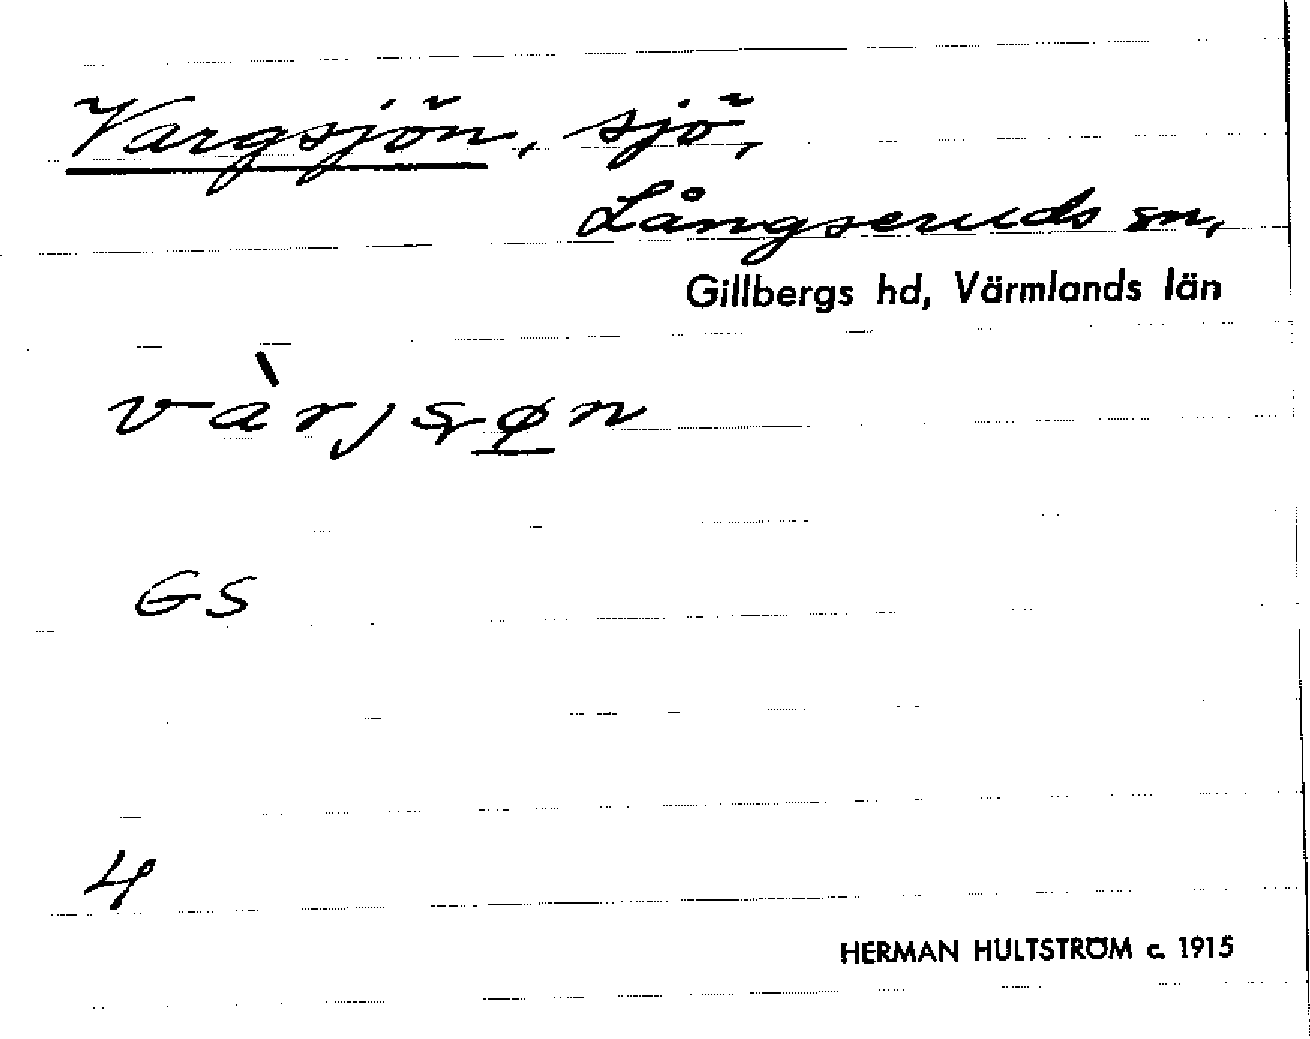 Vargsjön, sjö,
Långseruds sn,
Gillbergs hd, Värmlands län
GS
4
HERMAN HULTSTRÖM c. 1915